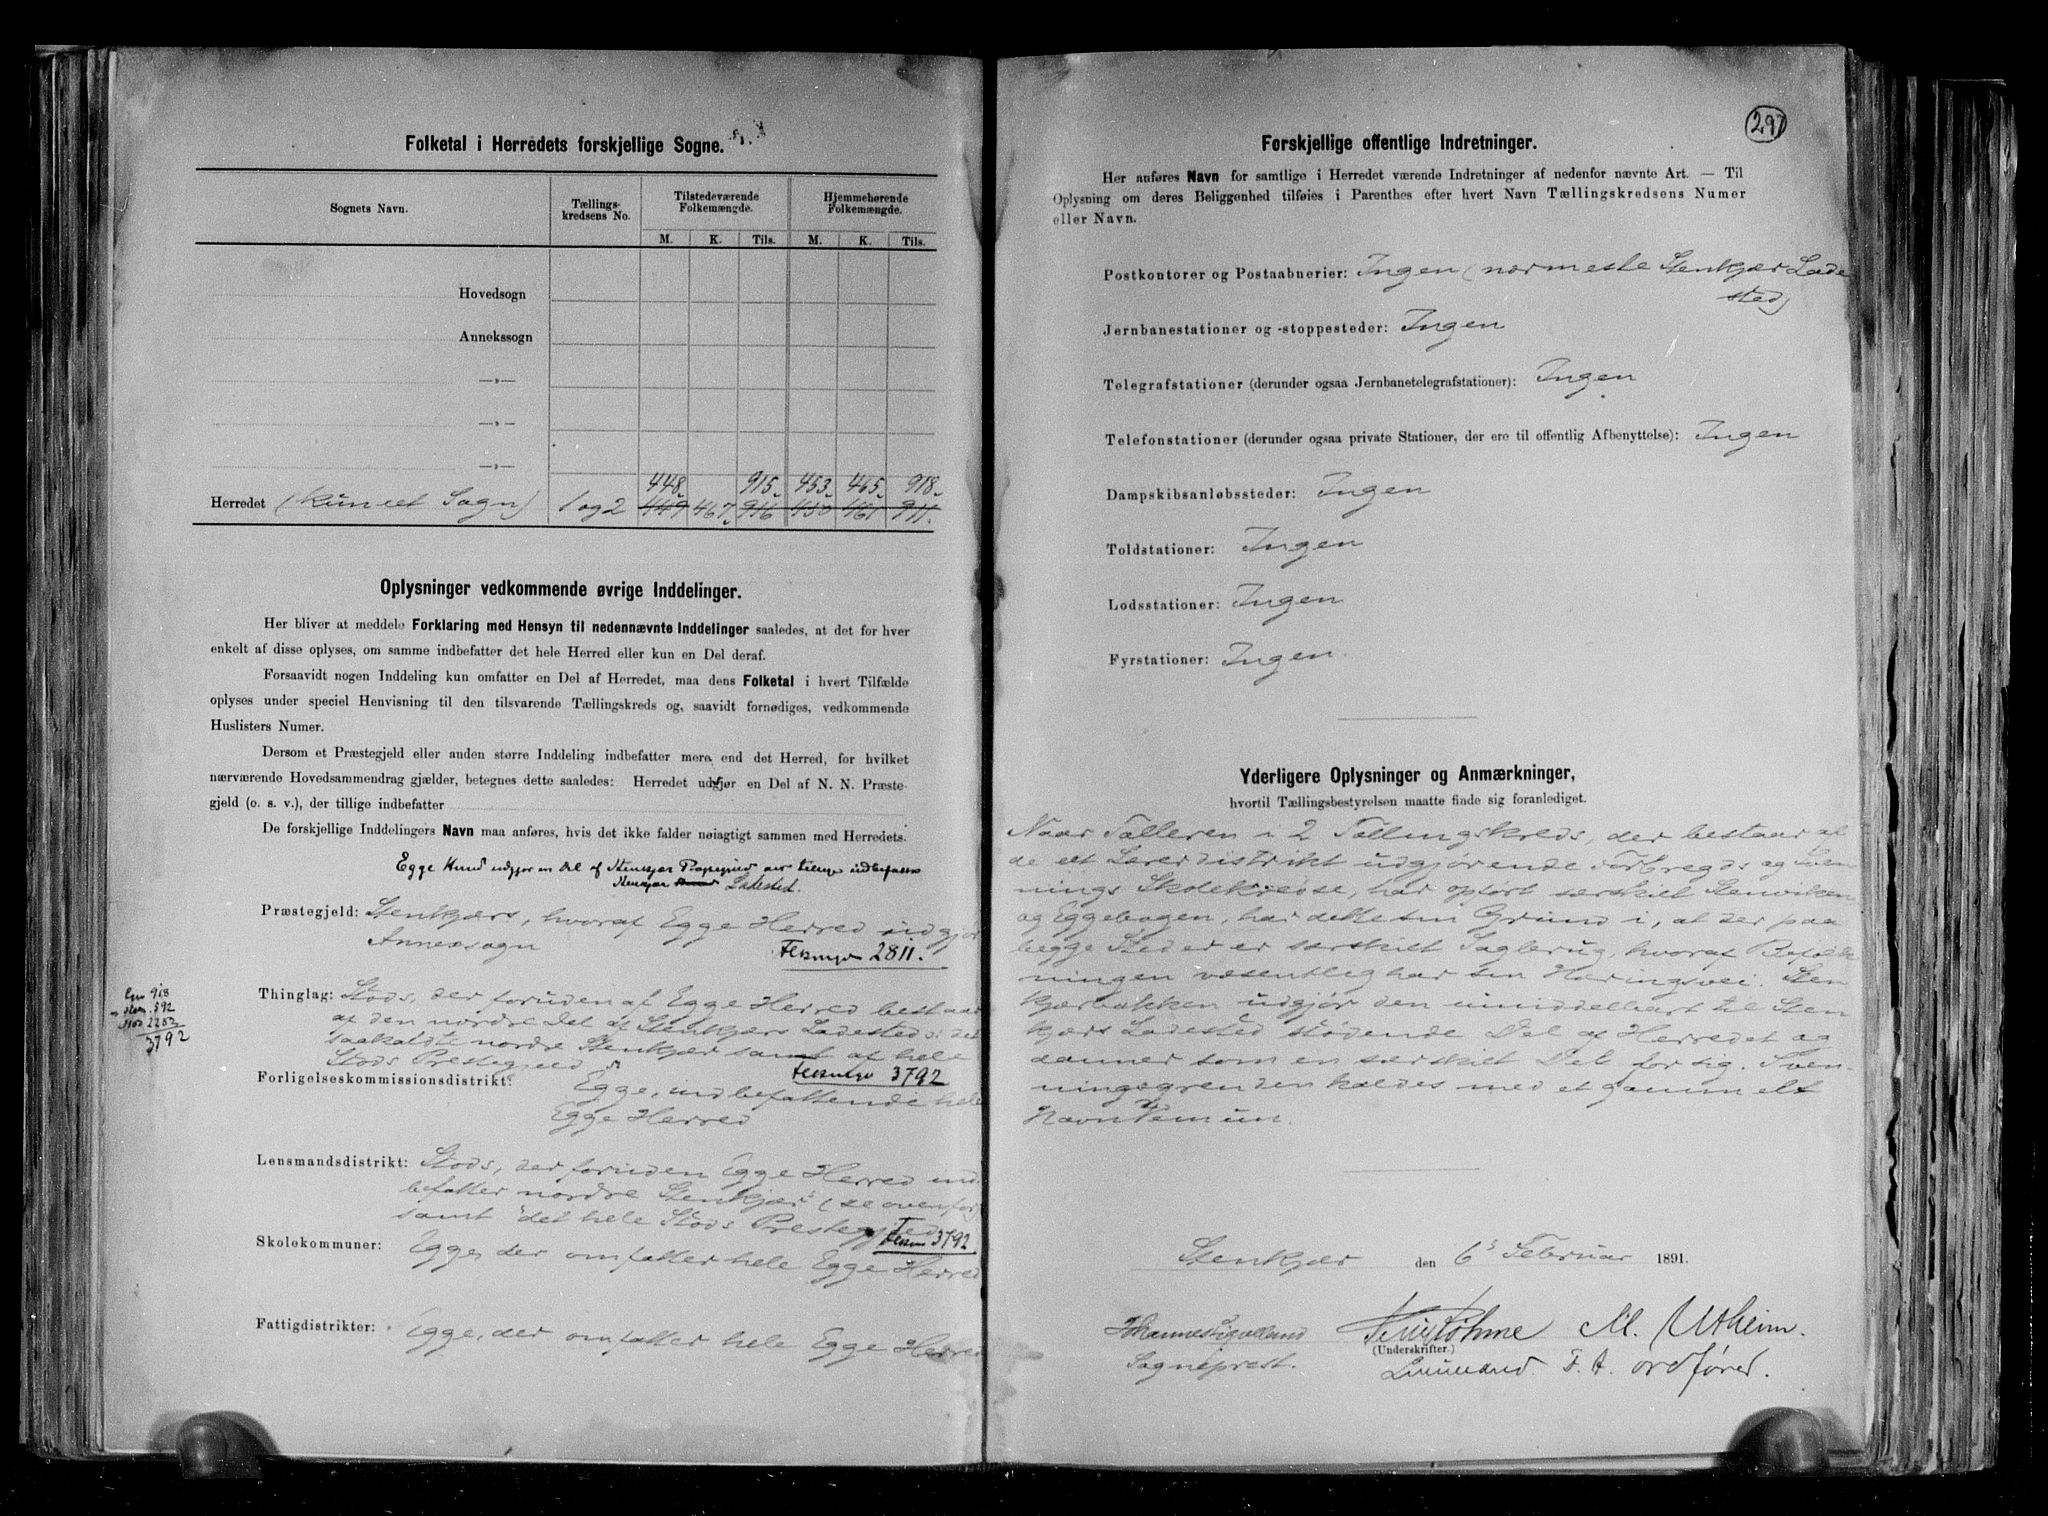 Folketal i Herredets forskjellige Sogne.
Sognets Navn.
Tællings-
kredsens No.
Tilstedeværende
Folkemængde.
Hjemmehørende
Folkemængde.
M. K. Tils. M. K. Tils.
Hovedsogn
Annekssogn
—„—
—„—
—„—
448. 915. 453. 465. 918.
Herredet (kun eet Sogn) 1 og 2 449 467. 916 450 461 911.
Oplysninger vedkommende øvrige Inddelinger.
Her bliver at meddele Forklaring med Hensyn til nedennævnte Inddelinger saaledes, at det for hver
enkelt af disse oplyses, om samme indbefatter det hele Herred eller kun en Del deraf.
Forsaavidt nogen Inddeling kun omfatter en Del af Herredet, maa dens Folketal i hvert Tilfælde
oplyses under speciel Henvisning til den tilsvarende Tællingskreds og, saavidt fornødiges, vedkommende
Huslisters Numer.
Dersom et Præstegjeld eller anden større Inddeling indbefatter mere end det Herred, for hvilket
nærværende Hovedsammendrag gjælder, betegnes dette saaledes: Herredet udgjør en Del af N. N. Præste-
gjeld (o. s. v.), der tillige indbefatter
De forskjellige Inddelingers Navn maa anføres, hvis det ikke falder nøiagtigt sammen med Herredets.
Egge Herred udgjør en Del af Stenkjær Præstegjeld der tillige indbefatter
Stenkjær Ladested.
Præstegjeld: Stenkjærs, hvoraf Egge Herred udgjør
Annexsogn
2811.
Thinglag: Stods, der foruden af Egge Herred bestaar
af den nordre Del af Stenkjærs Ladested: det
saakaldte nordre Stenkjær samt af hele
Stods Prestegjeld
3792
918
592
3792
Forligelseskommissionsdistrikt: Egge, indbefattende hele
Egge Herred
Lensmandsdistrikt: Stods, der foruden Egge Herred ind-
befatter nordre Stenkjær (se ovenfor)
samt det hele Stods Prestegjeld
3792
Skolekommuner: Egge, der omfatter hele Egge Herred
Fattigdistrikter: Egge, der omfatter hele Egge Herred
297
Forskjellige offentlige Indretninger.
Her anføres Navn for samtlige i Herredet værende Indretninger af nedenfor nævnte Art. — Til
Oplysning om deres Beliggenhed tilføies i Parenthes efter hvert Navn Tællingskredsens Numer
eller Navn.
Postkontorer og Postaabnerier: Ingen (nærmeste Stenkjær Lade
sted)
Jernbanestationer og -stoppesteder: Ingen
Telegrafstationer (derunder ogsaa Jernbanetelegrafstationer): Ingen
Telefonstationer (derunder ogsaa private Stationer, der ere til offentlig Afbenyttelse): Ingen
Dampskibsanløbssteder: Ingen
Toldstationer: Ingen
Lodsstationer: Ingen
Fyrstationer: Ingen.
Yderligere Oplysninger og Anmærkninger,
hvortil Tællingsbestyrelsen maatte finde sig foranlediget.
Naar Tælleren i 2 Tællingskreds, der bestaar af
de et Lærerdistrikt udgjørende Forbregds og Sven-
nings Skolekredse, har opført særskilt Stenviken
og Eggebogen, har dette sin Grund i, at der paa
begge Steder er særskilt Saglbrug, hvoraf Befolk
ningen væsentlig har sin Næringsvei. Sten
kjærbakken udgjør den umiddelbart til Sten
kjærs Ladested stødende Del af Herredet og
danner som en særskilt Del for sig. Sven-
ningsgrenden kaldes med et gammelt
Navn
Stenkjær den 6s Februar 1891.
M. Utheim.
(Underskrifter.)
Sogneprest.
Lensmand. F. A. ordfører.